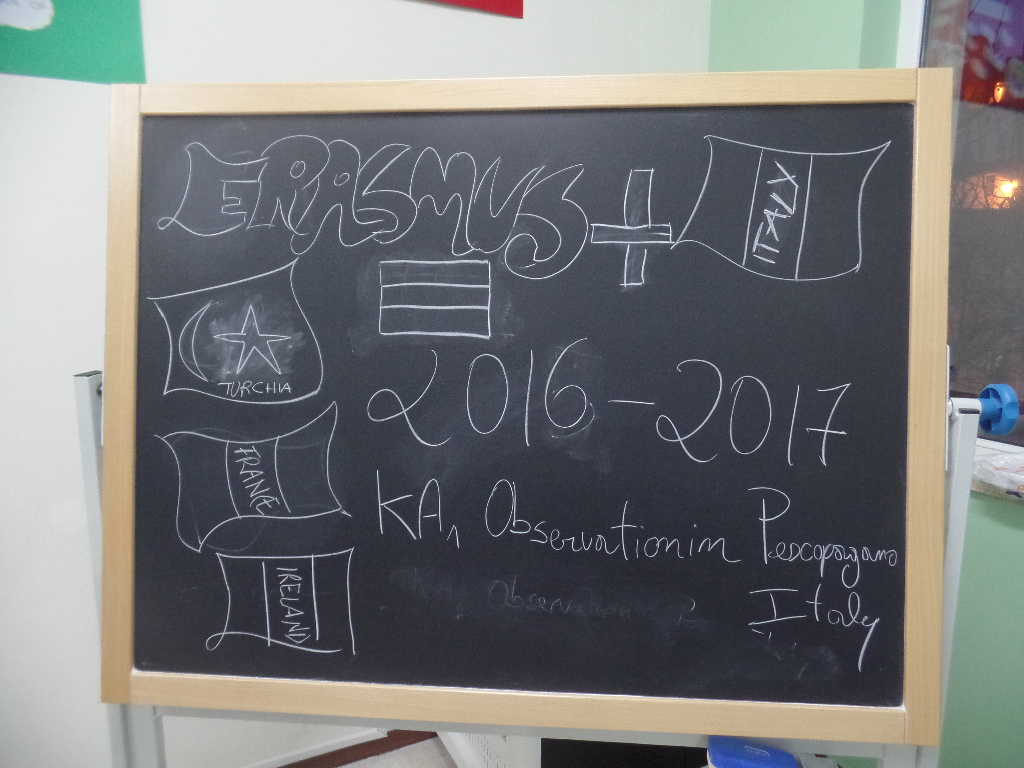 ERASMUS +
ITALY
TURCHIA
2016-2017
FRANCE
KA1 Observation in Pescopagano
Italy
IRELAND
Observation